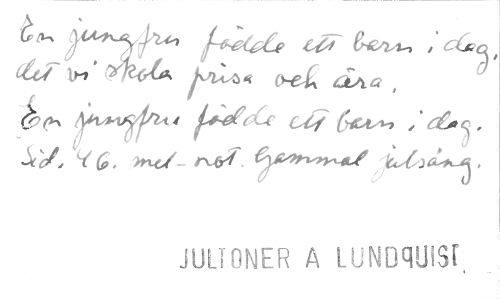 En jungfru födde ett barn i dag,
det vi skola prisa och ära.
En jungfru födde ett barn i dag.
Sid. 46. mel-not. Gammal julsång.
JULTONER A LUNDQUIST.